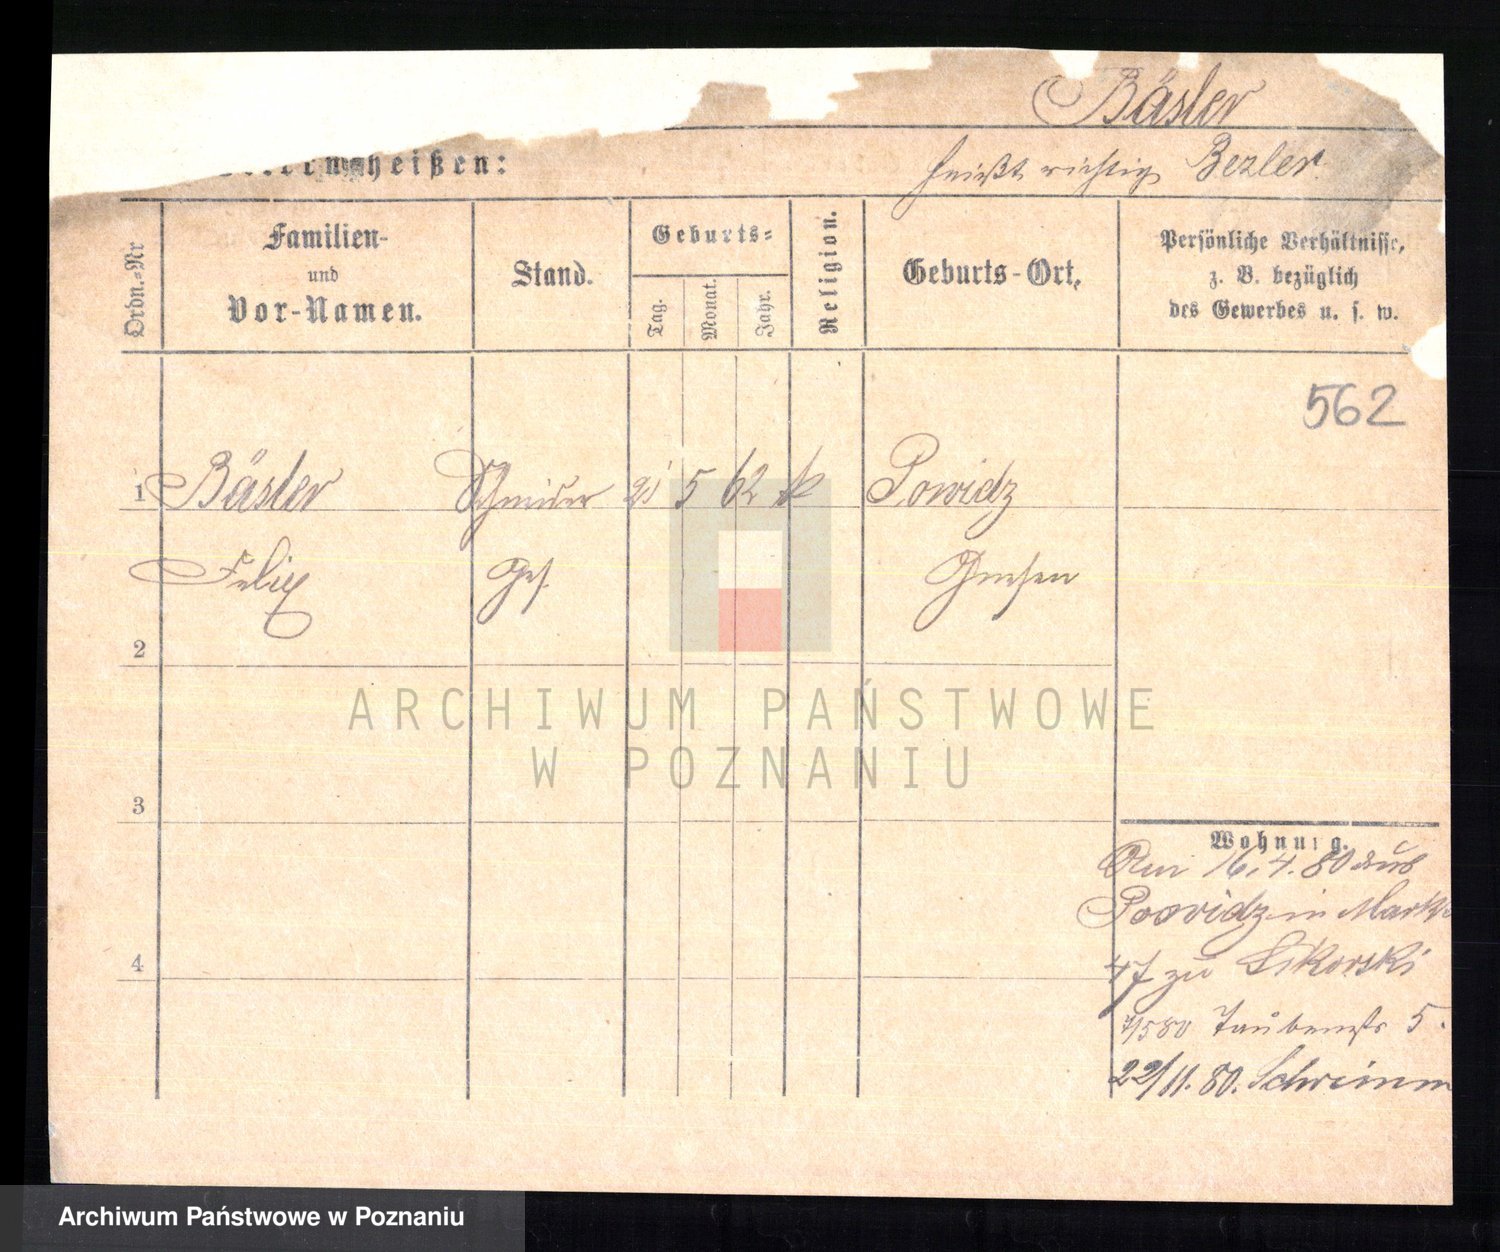 Bäsler
heißen:
heißt richtig Bezler
Ordn.-Nr
Familien-
und
Vor-Namen.
Stand.
Geburts-
Tag.
Monat.
Jahr.
Religion.
Geburts-Ort,
Persönliche Verhältnisse,
z. B. bezüglich
des Gewerbes u. s. w.
562
1 Bäsler Schneider 21 5 62 k Powidz
Felix Ges. Gnesen
2
3
4
Wohnung.
Am 16.4.80 aus
Powidz in Markt
47 zu Sikorski
7/5 80 Taubenstr 5.
22/11. 80. Schrimm
ARCHIWUM PAŃSTWOWE
W POZNANIU
Archiwum Państwowe w Poznaniu